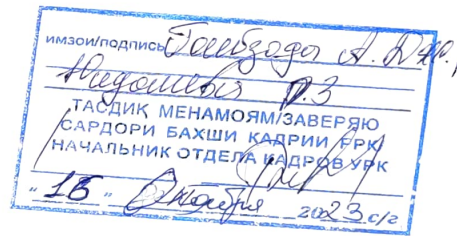 имзои/подпись Гоибзода А. Джо.
Нидоиевы Р.З
ТАСДИҚ МЕНАМОЯМ/ЗАВЕРЯЮ
САРДОРИ БАХШИ КАДРИИ РРК
НАЧАЛЬНИК ОТДЕЛА КАДРОВ УРК
"16" Октября 2023 с/г